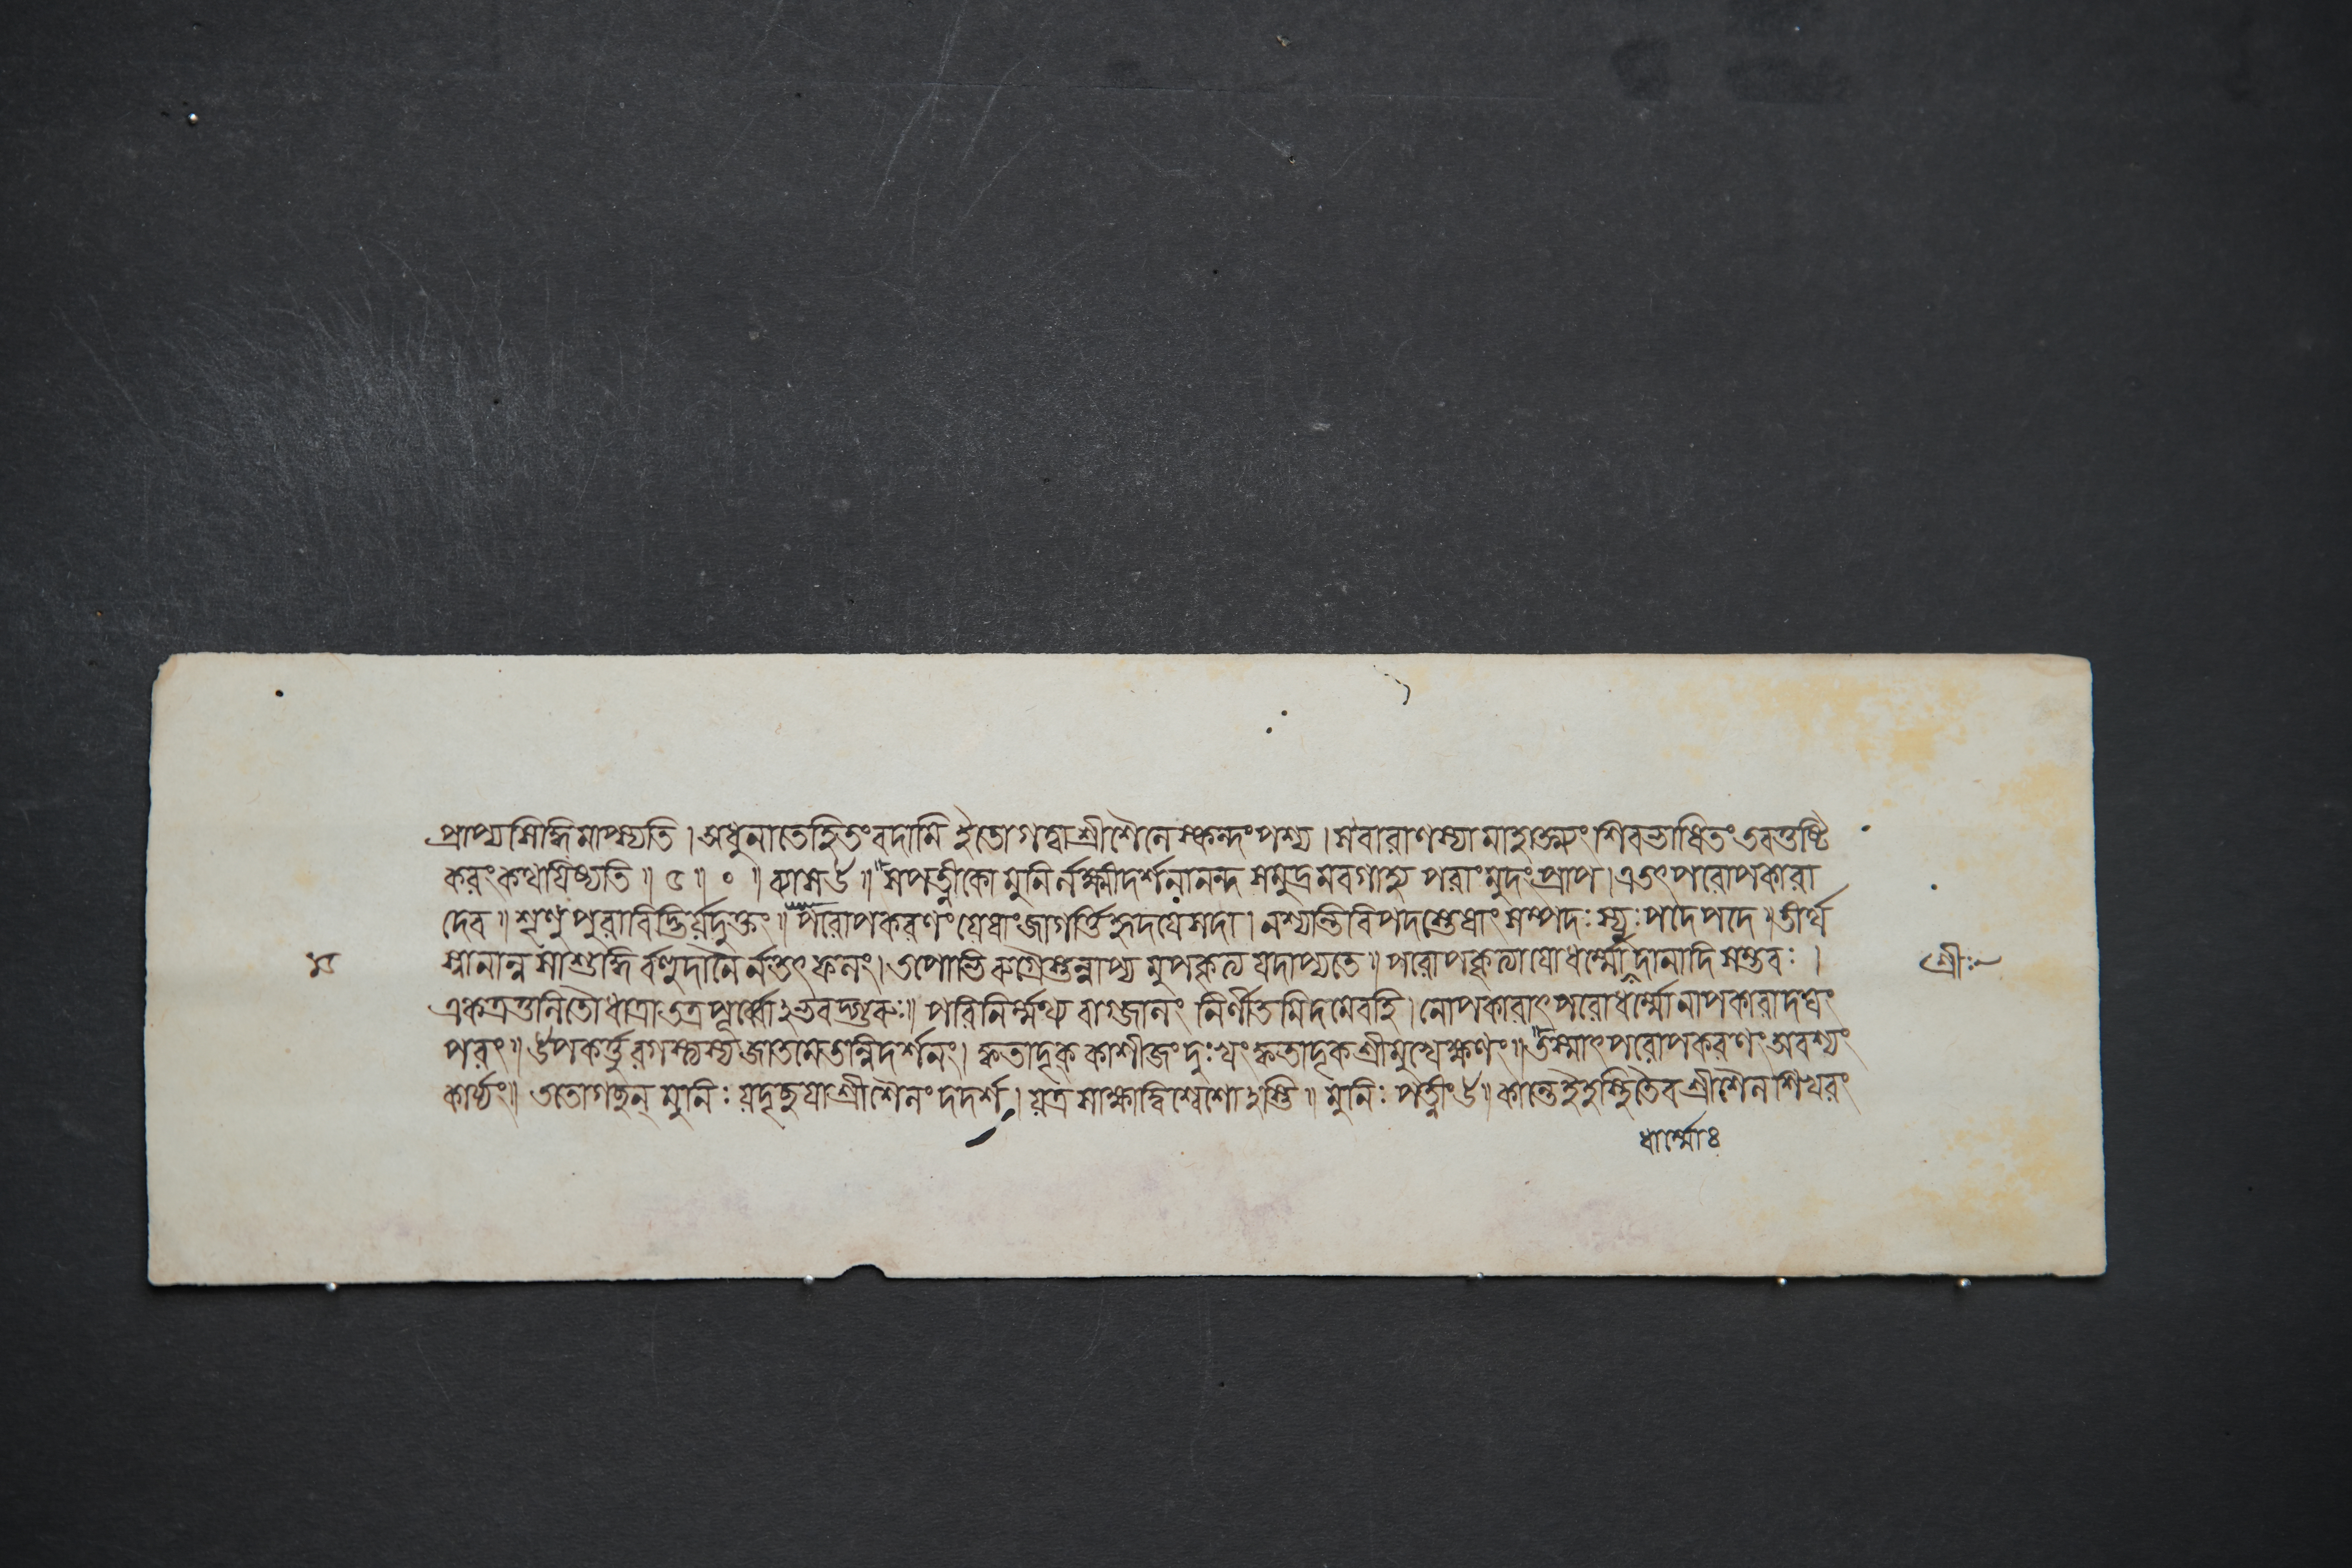 প্রাপ্য সিদ্ধিমাপ্স্যতি । অধুনা তে হিতং বদামি ইতো গত্বা শ্রীশৈলে স্কন্দং পশ্য । স বারাণস্যা মাহাত্ম্যং শিবভাষিতং তব তুষ্টি
করং কথয়িষ্যতি ॥ ৫ ॥ ০ ॥ ব্যাস উ ॥ সপত্নীকো মুনির্লক্ষ্মীদর্শনানন্দ সমুদ্রমবগাহ্য পরাং মুদং প্রাপ । এতৎ পরোপকারা
দেব ॥ শৃণু পুরাবিদ্ভির্যদুক্তং ॥ পরোপকরণং যেষাং জাগর্ত্তি হৃদয়ে সদা । নশ্যন্তি বিপদস্তেষাং সম্পদঃ স্যুঃ পদে পদে ॥ তীর্থ
স্নানান্ন সা শুদ্ধির্বহুদানৈর্ন তৎ ফলং । তপোভিরুগ্রৈস্তন্নাপ্যমুপকৃত্য যদাপ্যতে ॥ পরোপকৃত্যা যো ধর্ম্মো দানাদিসম্ভবঃ ।
একত্র তুলিতৌ ধাত্রা তত্র পূর্ব্বোঽভবদ্গুরুঃ ॥ পরিনির্ম্মথ্য বাগ্জালং নির্ণীতমিদমেব হি । নোপকারাৎ পরো ধর্ম্মো নাপকারাদঘং
পরং ॥ উপকর্ত্তুরগস্ত্যস্য জাতমেতন্নিদর্শনং । ক্ব তাদৃক্ কাশীজং দুঃখং ক্ব তাদৃক শ্রীমুখেক্ষণং ॥ তস্মাৎ পরোপকরণং অবশ্যং
কার্য্যং ॥ ততো গচ্ছন্ মুনিঃ যদৃচ্ছয়া শ্রীশৈলং দদর্শ । যত্র সাক্ষাদ্বিশ্বেশোঽস্তি ॥ মুনিঃ পত্নীং উ ॥ কান্তে ইহ স্থিতৈব শ্রীশৈল শিখরং
শ্রীঃ